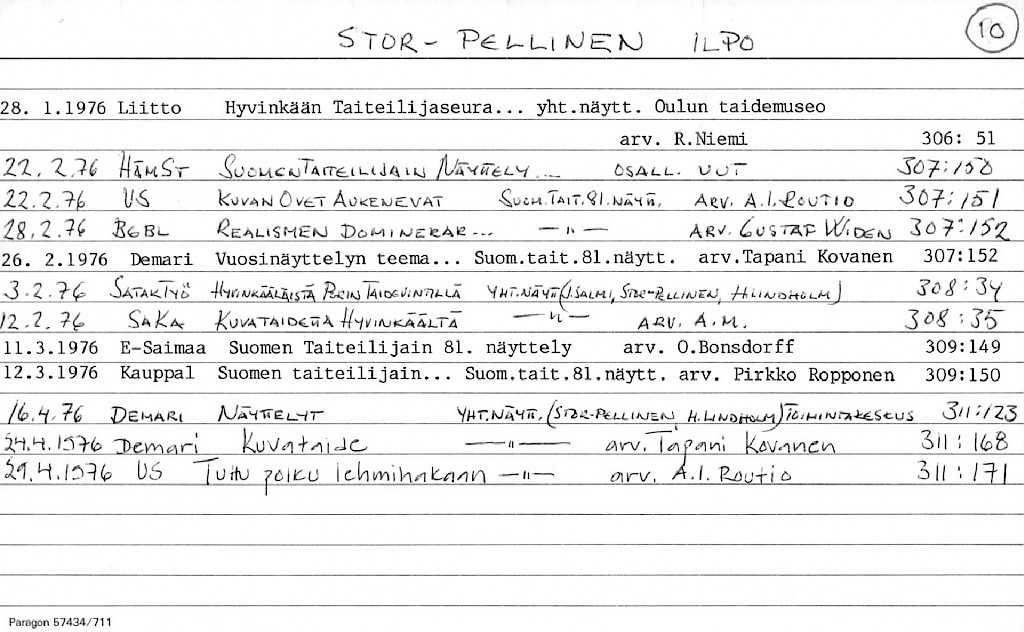 STOR-PELLINEN ILPO 10
28. 1.1976 Liitto Hyvinkään Taiteilijaseura... yht.näytt. Oulun taidemuseo
arv. R.Niemi 306: 51
22.2.76 HÄMST SUOMEN TAITEILIJAIN NÄYTTELY... OSALL. UUT 307:150
22.2.76 US KUVAN OVET AUKENEVAT SUOM.TAIT.81.NÄYTT. ARV. A.I.ROUTIO 307:151
28.2.76 BGBL REALISMEN DOMINERAR... —"— ARV. GUSTAF WIDEN 307:152
26. 2.1976 Demari Vuosinäyttelyn teema... Suom.tait.81.näytt. arv.Tapani Kovanen 307:152
3.2.76 SATAKTYÖ HYVINKÄÄLÄISTÄ PORIN TAIDEVINTILLÄ YHT.NÄYTT (J.SALMI, STOR-PELLINEN, H.LINDHOLM) 308:34
12.2.76 SAKA KUVATAIDETTA HYVINKÄÄLTÄ —"— ARV. A.M. 308:35
11.3.1976 E-Saimaa Suomen Taiteilijain 81. näyttely arv. O.Bonsdorff 309:149
12.3.1976 Kauppal Suomen taiteilijain... Suom.tait.81.näytt. arv. Pirkko Ropponen 309:150
16.4.76 DEMARI NÄYTTELYT YHT.NÄYTT. (STOR-PELLINEN, H.LINDHOLM) TOIMINTAKESKUS 311:123
24.4.1976 Demari Kuvataide —"— arv. Tapani Kovanen 311:168
29.4.1976 US Tuttu polku lehmihakaan —"— arv. A.I. Routio 311:171
Paragon 57434/711